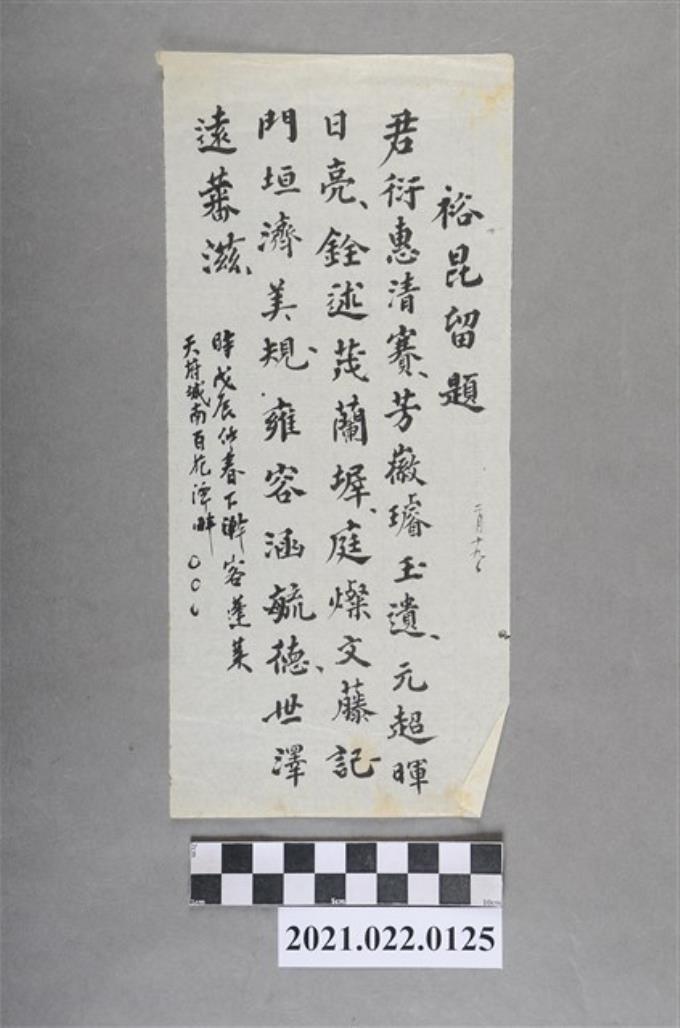 裕昆留題
二月十九、
君衍惠清賽、芳徽璿玉遺、元超暉
日亮、銓述茂蘭墀、庭燦文藤記
門垣濟美規、雍容涵毓德、世澤
遠蕃滋、
時戊辰仲春下澣客蓬萊
天府城南百花潭畔○○○
2021.022.0125
0cm 5cm 10cm